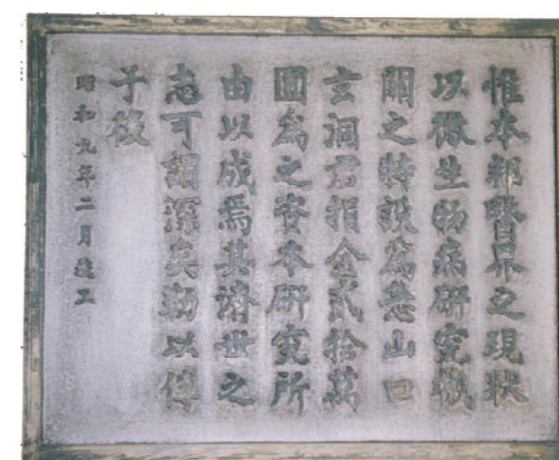 惟本邦醫界之現狀
以微生物病研究機
關之特設爲急山口
玄洞君捐金貳拾萬
圓爲之資本研究所
由以成焉其濟世之
志可謂深矣勒以傳
于後
昭和九年二月竣工